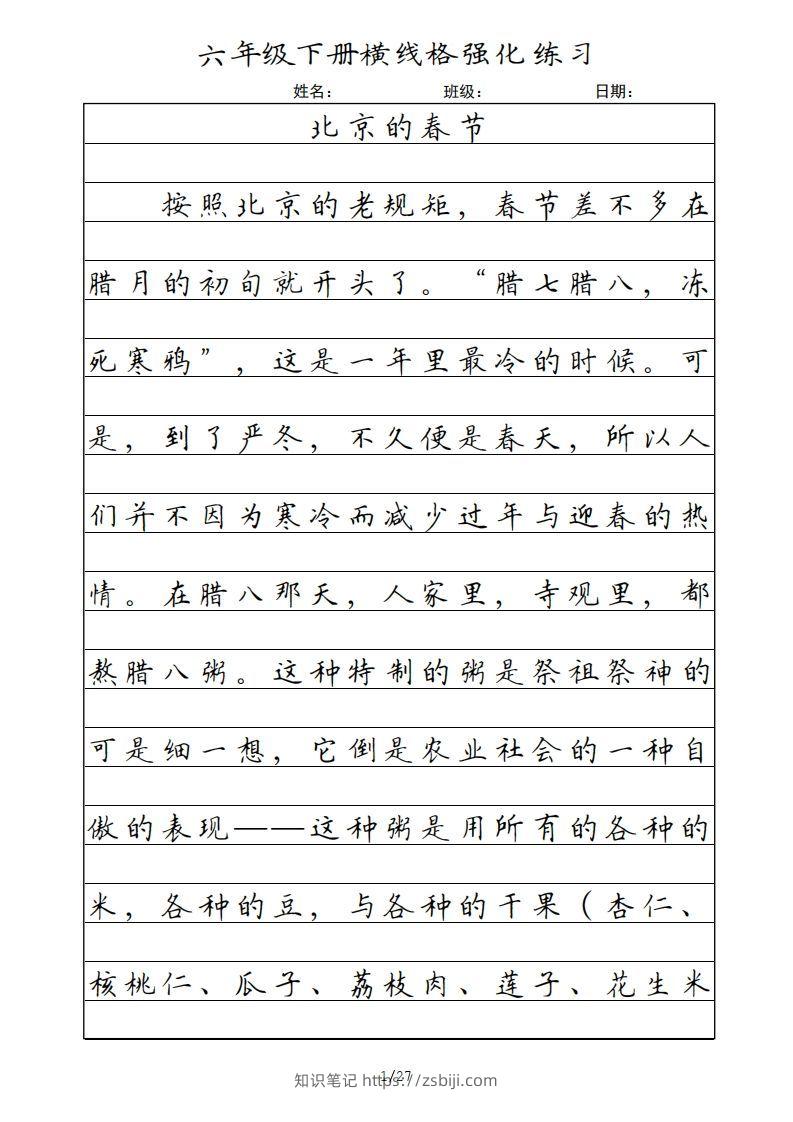 六年级下册横线格强化练习
姓名： 班级： 日期：
北京的春节
按照北京的老规矩，春节差不多在
腊月的初旬就开头了。“腊七腊八，冻
死寒鸦”，这是一年里最冷的时候。可
是，到了严冬，不久便是春天，所以人
们并不因为寒冷而减少过年与迎春的热
情。在腊八那天，人家里，寺观里，都
熬腊八粥。这种特制的粥是祭祖祭神的
可是细一想，它倒是农业社会的一种自
傲的表现——这种粥是用所有的各种的
米，各种的豆，与各种的干果（杏仁、
核桃仁、瓜子、荔枝肉、莲子、花生米
1/27
知识笔记 https://zsbiji.com